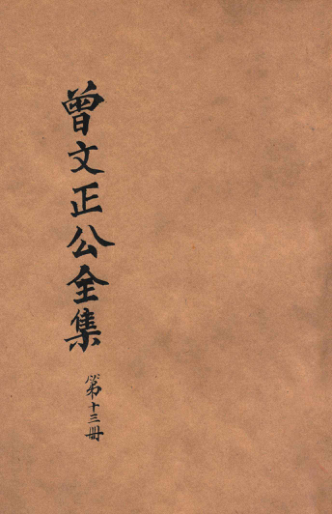 曾文正公全集
第十三冊